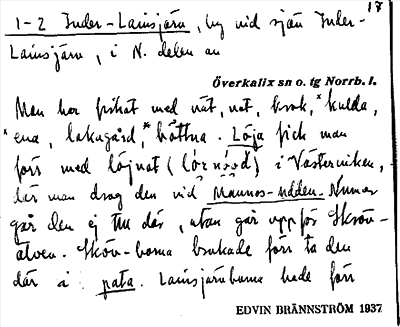 17
1-2 Inder-Lainsjärv, by vid sjön Inder-
Lainsjärv, i N. delen av
Överkalix sn o. tg Norrb. l.
Man har fiskat med nät, not, krok, *kulda,
*ena, lakagård, *håttna. Löja fick man
förr med löjnot (            ) i Västerviken,
där man drog den vid Mannos-udden. Numer
går den ej till där, utan går uppför Skröv-
älven. Skröv-borna brukade förr ta den
där i pata. Lainsjärvborna hade förr
EDVIN BRÄNNSTRÖM 1937